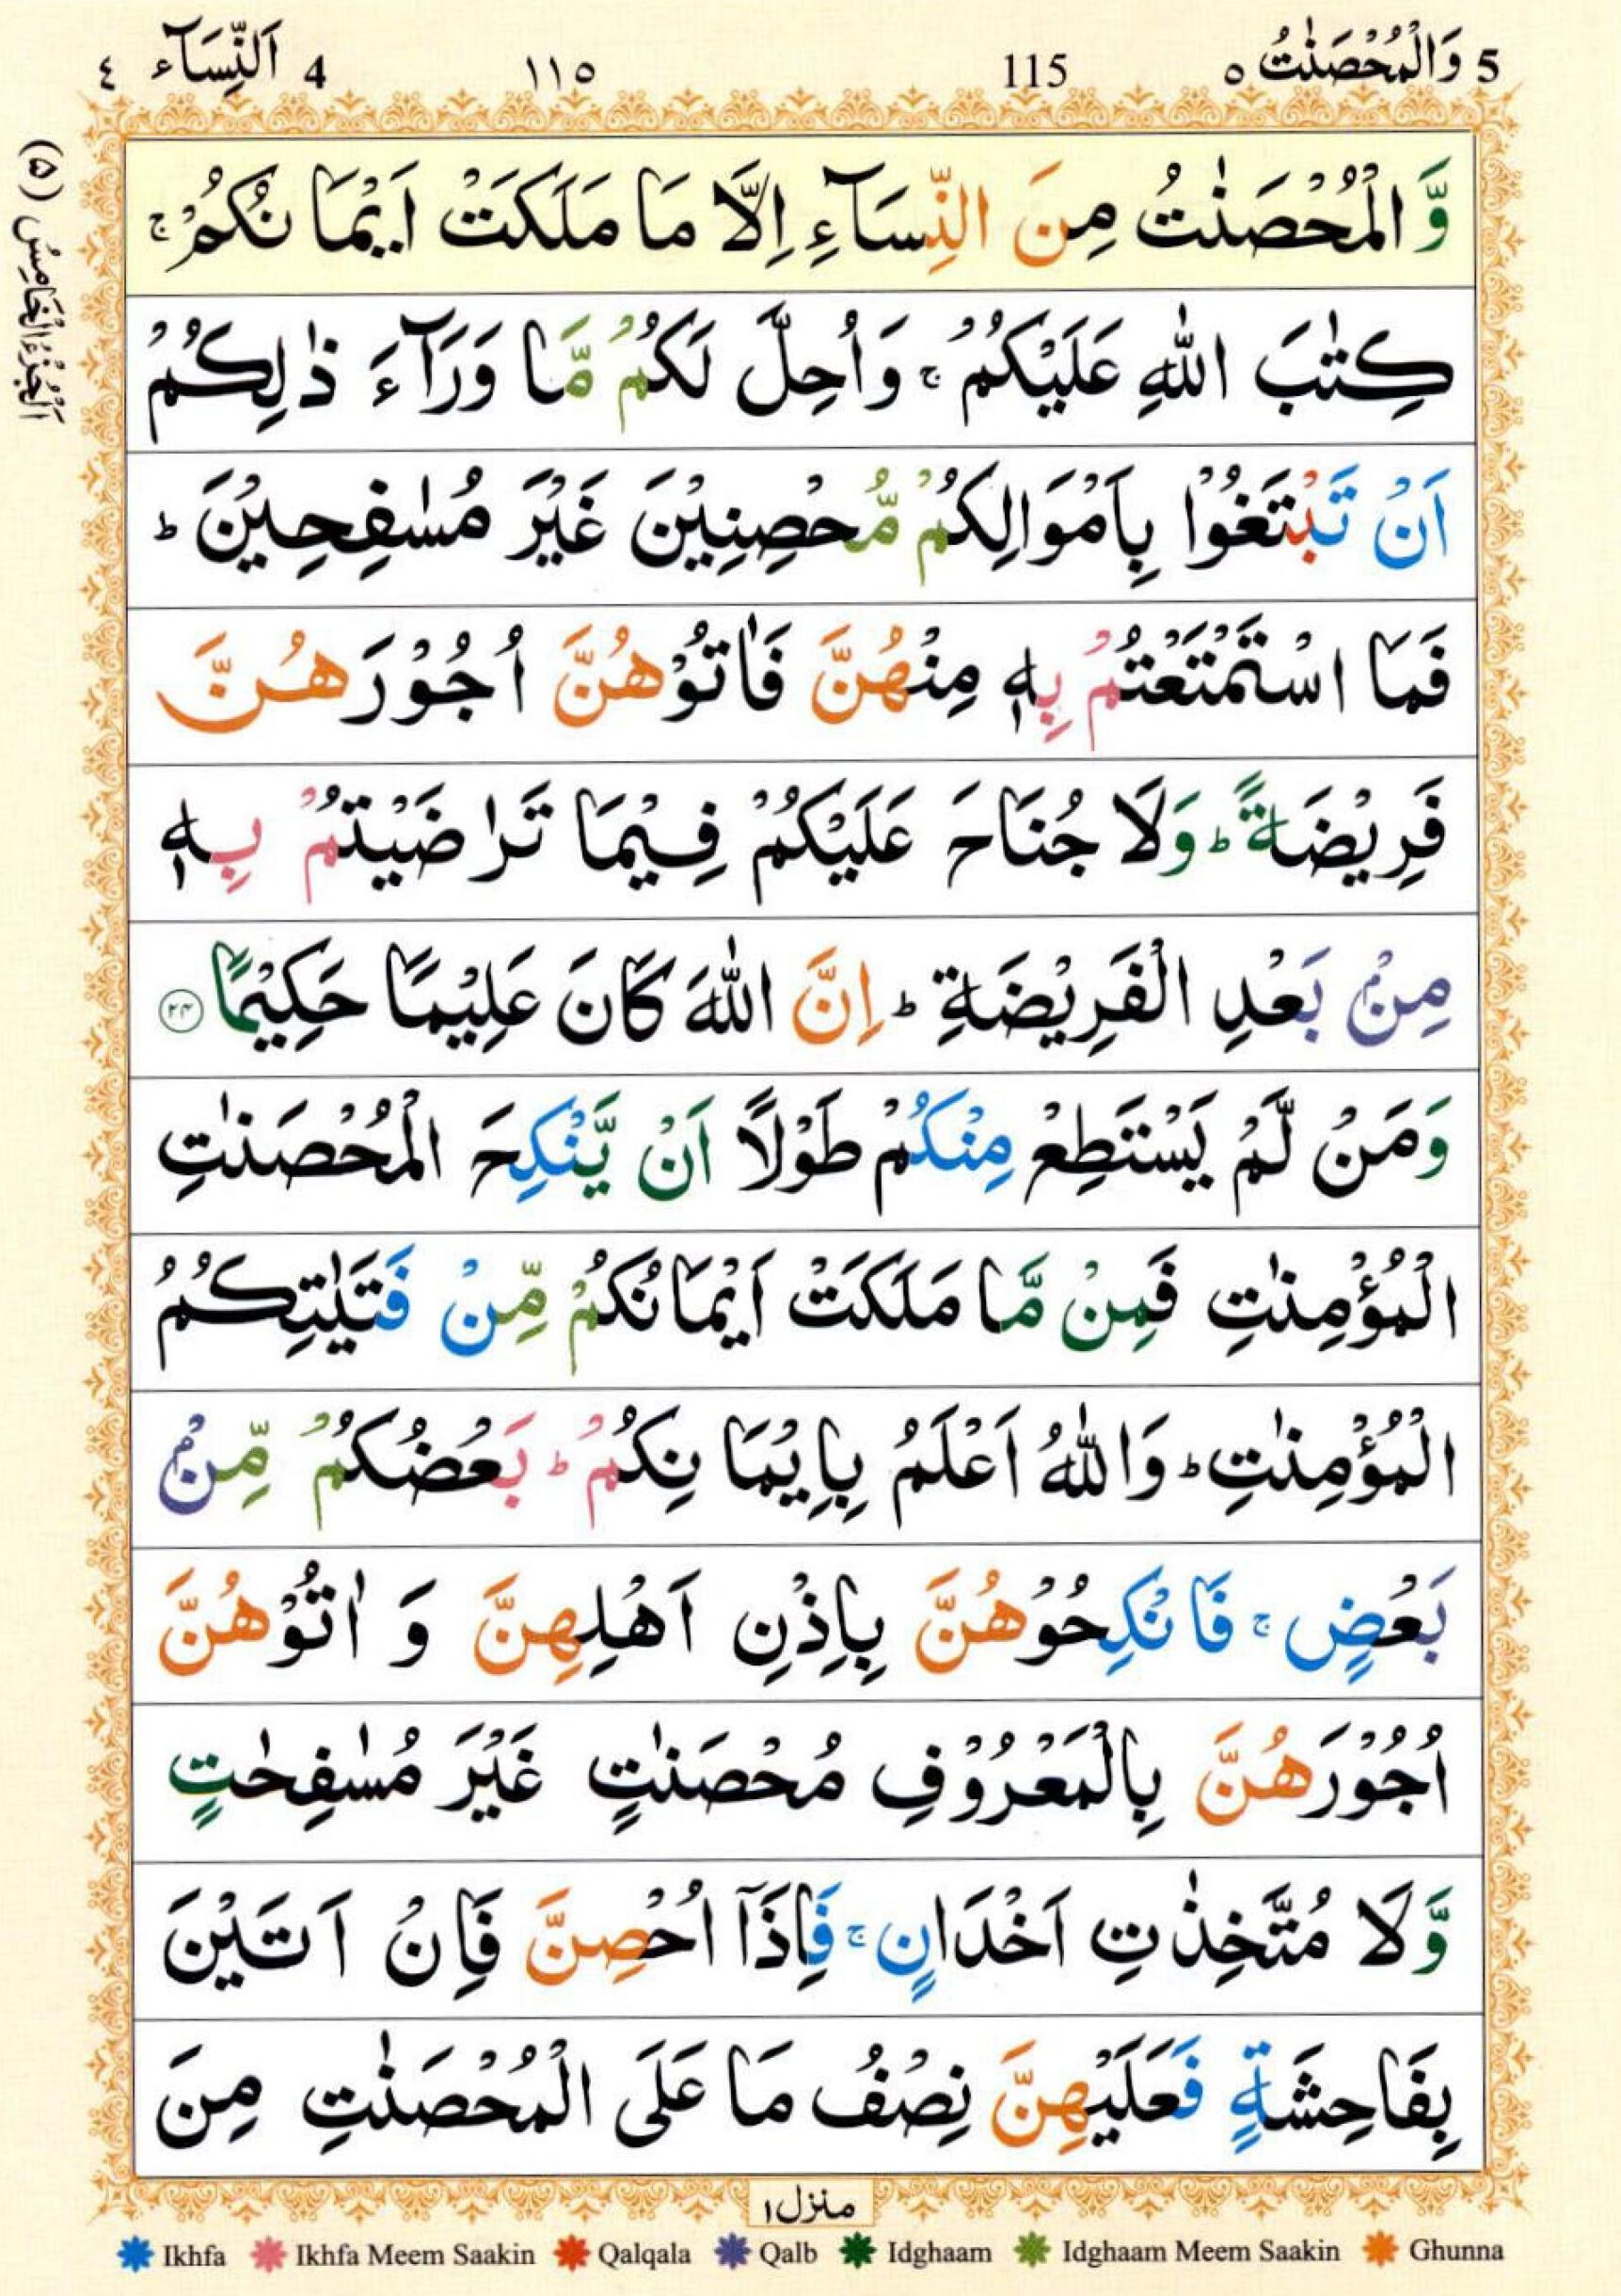 5 وَالْمُحْصَنٰتُ ٥ 115 ١١٥ 4 اَلنِّسَآء ٤
اَلْجُزْءُ الْخَامِسُ (۵)
وَّالْمُحْصَنٰتُ مِنَ النِّسَآءِ اِلَّا مَا مَلَكَتْ اَيْمَانُكُمْ ۚ
كِتٰبَ اللّٰهِ عَلَيْكُمْ ۚ وَاُحِلَّ لَكُمْ مَّا وَرَآءَ ذٰلِكُمْ
اَنْ تَبْتَغُوْا بِاَمْوَالِكُمْ مُّحْصِنِيْنَ غَيْرَ مُسٰفِحِيْنَ ؕ
فَمَا اسْتَمْتَعْتُمْ بِهٖ مِنْهُنَّ فَاٰتُوْهُنَّ اُجُوْرَهُنَّ
فَرِيْضَةً ؕ وَلَا جُنَاحَ عَلَيْكُمْ فِيْمَا تَرٰضَيْتُمْ بِهٖ
مِنْۢ بَعْدِ الْفَرِيْضَةِ ؕ اِنَّ اللّٰهَ كَانَ عَلِيْمًا حَكِيْمًا ۲۴
وَمَنْ لَّمْ يَسْتَطِعْ مِنْكُمْ طَوْلًا اَنْ يَّنْكِحَ الْمُحْصَنٰتِ
الْمُؤْمِنٰتِ فَمِنْ مَّا مَلَكَتْ اَيْمَانُكُمْ مِّنْ فَتَيٰتِكُمُ
الْمُؤْمِنٰتِ ؕ وَاللّٰهُ اَعْلَمُ بِاِيْمَانِكُمْ ؕ بَعْضُكُمْ مِّنْۢ
بَعْضٍ ۚ فَانْكِحُوْهُنَّ بِاِذْنِ اَهْلِهِنَّ وَاٰتُوْهُنَّ
اُجُوْرَهُنَّ بِالْمَعْرُوْفِ مُحْصَنٰتٍ غَيْرَ مُسٰفِحٰتٍ
وَّلَا مُتَّخِذٰتِ اَخْدَانٍ ۚ فَاِذَآ اُحْصِنَّ فَاِنْ اَتَيْنَ
بِفَاحِشَةٍ فَعَلَيْهِنَّ نِصْفُ مَا عَلَى الْمُحْصَنٰتِ مِنَ
منزل ۱
Ikhfa Ikhfa Meem Saakin Qalqala Qalb Idghaam Idghaam Meem Saakin Ghunna